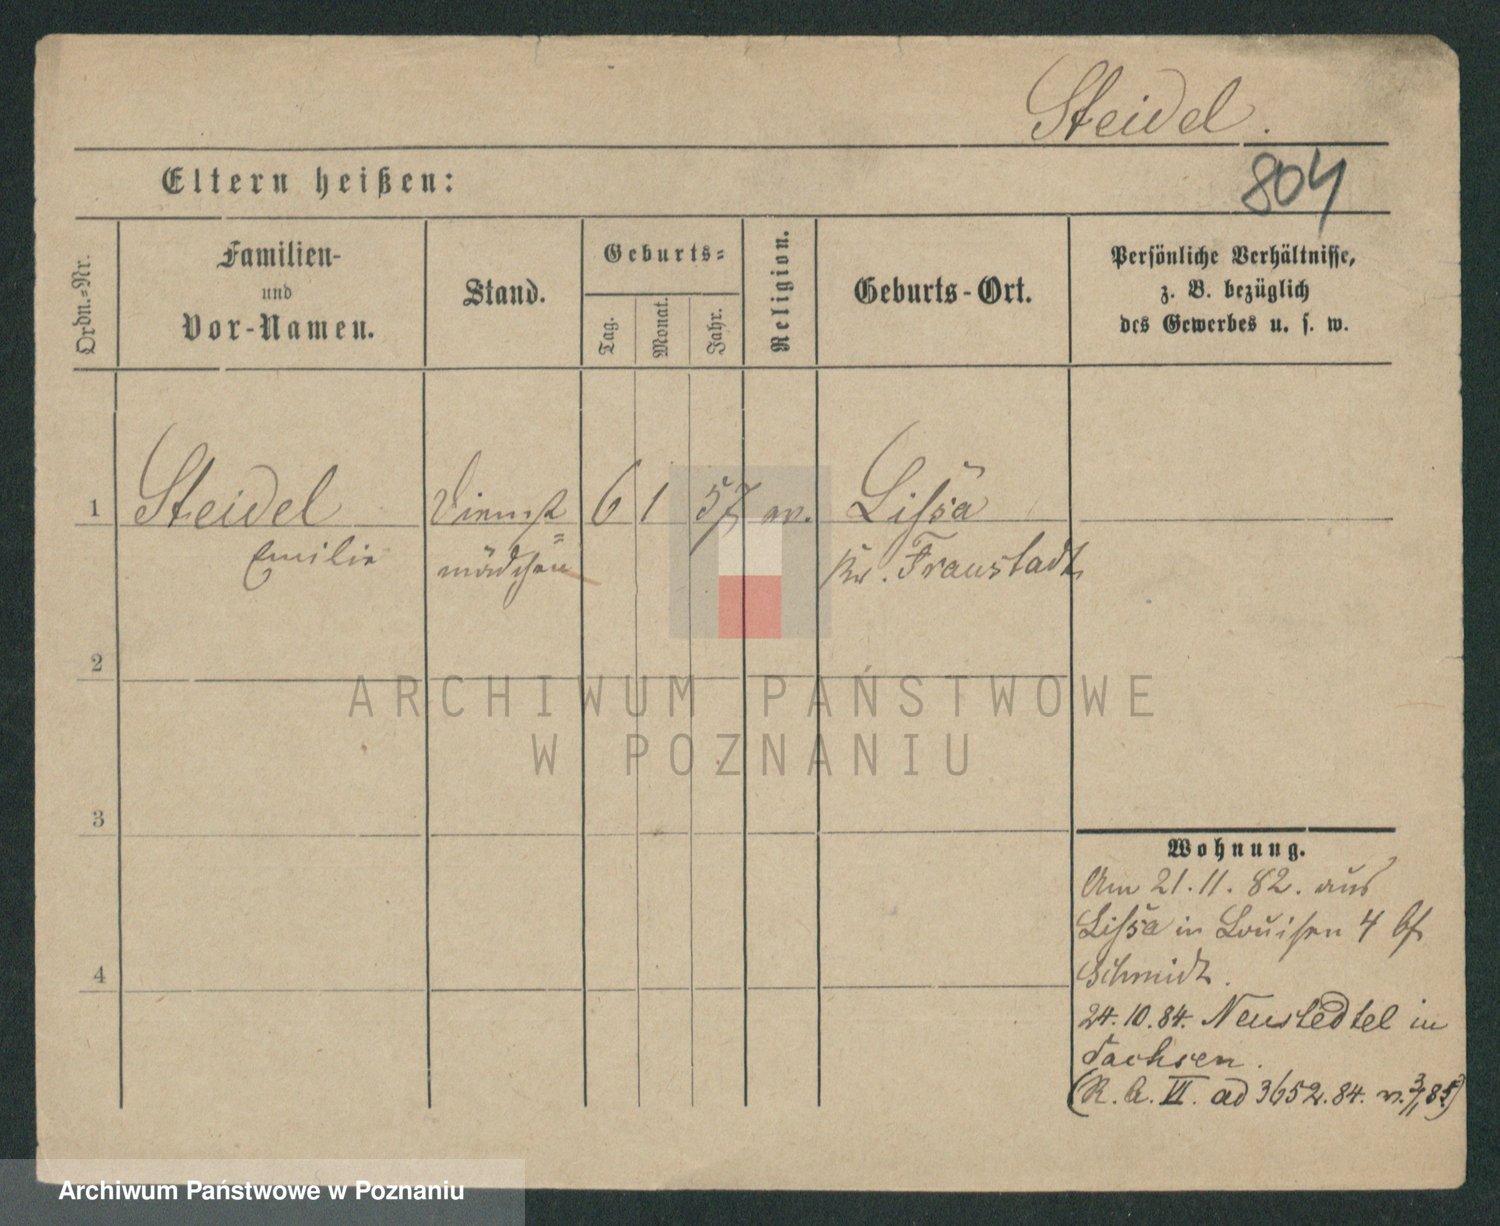 Steidel.
804
Eltern heißen:
Ordn.=Nr.
Familien-
und
Vor-Namen.
Stand.
Geburts=
Tag.
Monat.
Jahr.
Religion.
Geburts-Ort.
Persönliche Verhältnisse,
z. B. bezüglich
des Gewerbes u. s. w.
1
Steidel
Emilie
Dienst=
mädchen
6
1
57
Lissa
Kr. Fraustadt
2
3
4
Wohnung.
Am 21.11.82. aus
Lissa in Louisen 4 bei
Schmidt.
24.10.84. Neustedtel in
Sachsen.
(R. A. VI. ad 3652.84. v. 3/1 85)
ARCHIWUM PAŃSTWOWE
W POZNANIU
Archiwum Państwowe w Poznaniu